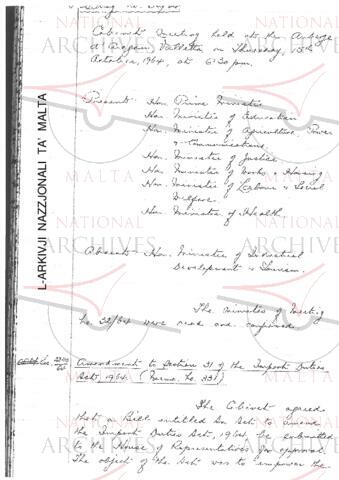 Cabinet Meeting held at the Auberge
d'Aragon, Valletta on Thursday, 15th
October, 1964, at 6.30 p.m.
Present: Hon. Prime Minister
Hon. Minister of Education
Hon. Minister of Agriculture, Power
& Communications.
Hon. Minister of Justice.
Hon. Minister of Works & Housing
Hon. Minister of Labour & Social
Welfare.
Hon. Minister of Health.
Absent: Hon. Minister of Industrial
Development & Tourism.
The Minutes of Meeting
No. 32/64 were read and confirmed.
Amendment to Section 31 of the Import Duties
Act, 1964. (Memo. No. 331)
The Cabinet agreed
that a Bill entitled An Act to amend
the Import Duties Act, 1964, be submitted
to the House of Representatives for approval.
The object of the Act was to empower the
L-ARKIVJI NAZZJONALI TA' MALTA
NATIONAL
ARCHIVES
MALTA
NATIONAL
ARCHIVES
MALTA
NATIONAL
ARCHIVES
MALTA
NATIONAL
ARCHIVES
MALTA
NATIONAL
ARCHIVES
MALTA
NATIONAL
ARCHIVES
MALTA